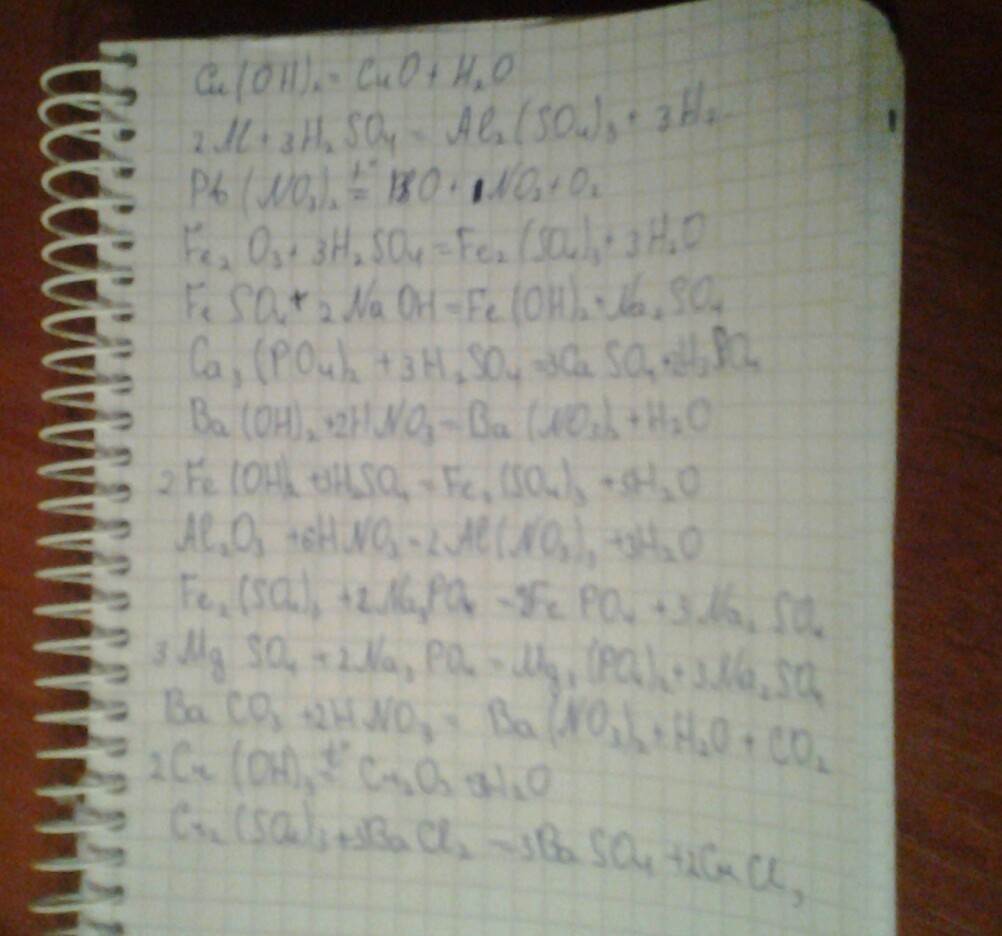 Cu(OH)₂ = CuO + H₂O
2Al + 3H₂SO₄ = Al₂(SO₄)₃ + 3H₂
Pb(NO₃)₂ = PbO + NO₂ + O₂
Fe₂O₃ + 3H₂SO₄ = Fe₂(SO₄)₃ + 3H₂O
FeSO₄ + 2NaOH = Fe(OH)₂ + Na₂SO₄
Ca₃(PO₄)₂ + 3H₂SO₄ = 3CaSO₄ + 2H₃PO₄
Ba(OH)₂ + 2HNO₃ = Ba(NO₃)₂ + H₂O
2Fe(OH)₂ + 3H₂SO₄ = Fe₂(SO₄)₃ + H₂O
Al₂O₃ + 6HNO₃ = 2Al(NO₃)₃ + 3H₂O
Fe₂(SO₄)₃ + 2Na₃PO₄ = 2FePO₄ + 3Na₂SO₄
3MgSO₄ + 2Na₃PO₄ = Mg₃(PO₄)₂ + 3Na₂SO₄
BaCO₃ + 2HNO₃ = Ba(NO₃)₂ + H₂O + CO₂
2Cr(OH)₃ t° = Cr₂O₃ + 3H₂O
Cr₂(SO₄)₃ + 3BaCl₂ = 3BaSO₄ + 2CrCl₃